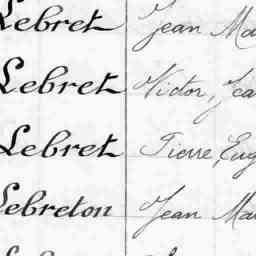 Lebret Jean Ma
Lebret Victor, Jea
Lebret Pierre, Eug
Lebreton Jean Mar